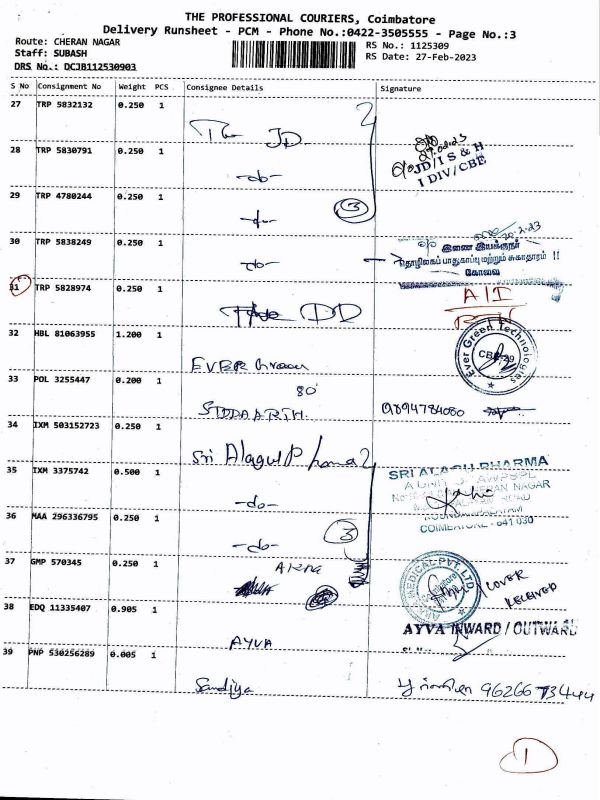 THE PROFESSIONAL COURIERS, Coimbatore
Delivery Runsheet - PCM - Phone No.:0422-3505555 - Page No.:3
Route: CHERAN NAGAR RS No.: 1125309
Staff: SUBASH RS Date: 27-Feb-2023
DRS No.: DCJB112530903
S No Consignment No Weight PCS Consignee Details Signature
27 TRP 5832132 0.250 1 The JD
28 TRP 5830791 0.250 1 -do- 27.02.23
JD/I S & H
I DIV/CBE
29 TRP 4780244 0.250 1 -do- 3
30 TRP 5838249 0.250 1 -do-
இணை இயக்குநர்
தொழிலகப் பாதுகாப்பு மற்றும் சுகாதாரம் II
கோவை
31 TRP 5828974 0.250 1 DD A/I
32 HBL 81063955 1.200 1 EVER Green
Ever Green Technologies
33 POL 3255447 0.200 1 80
SIDDAARTH 9894784080
34 IXM 503152723 0.250 1 Sri Alagu Pharma
35 IXM 3375742 0.500 1 -do-
SRI ALAGU PHARMA
CHERAN NAGAR
ROAD
COIMBATORE - 641 030
36 MAA 296336795 0.250 1 -do- 3
37 GMP 570345 0.250 1
MEDICAL PVT. LTD
COVER
RECEIVED
38 EDQ 11335407 0.905 1 AYVA
AYVA INWARD / OUTWARD
39 PNP 530256289 0.005 1 Sandiya 9626673444
1